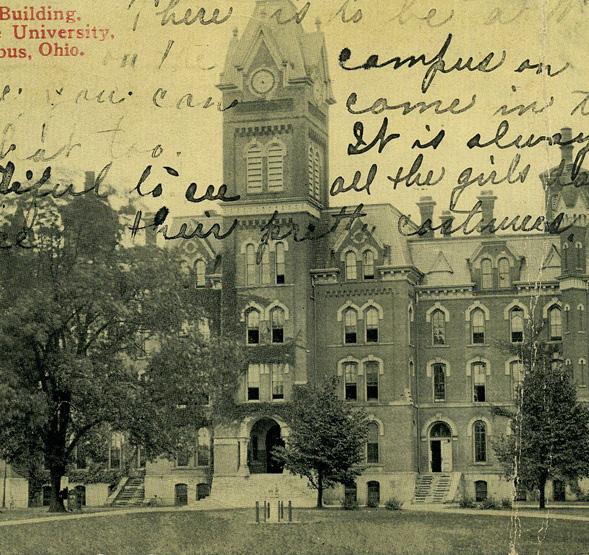 Building.
University,
bus, Ohio.
There is to be at
on the campus on
you can come in
hat too. It is alway
diful to see all the girls
their pretty costumes.